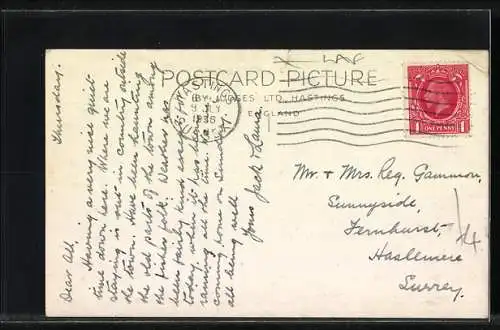 POSTCARD PICTURE
(BY JUDGES' LTD., HASTINGS,
ENGLAND
HASTINGS
JLY
1936
SUSSEX
1 1
ONE PENNY
Thursday.
Dear All,
Having a very nice quiet
time down here. Where we are
staying is out in country outside
the town. Have been haunting
the old parts of the town among
the fisher folk. Weather has
been fairly kind except
today, when it has been
raining all the time. Are
coming home on Sunday
all being well
Yours Jack & Lena.
Mr & Mrs. Reg. Gammon,
Sunnyside,
Fernhurst,
Haslemere
Surrey.